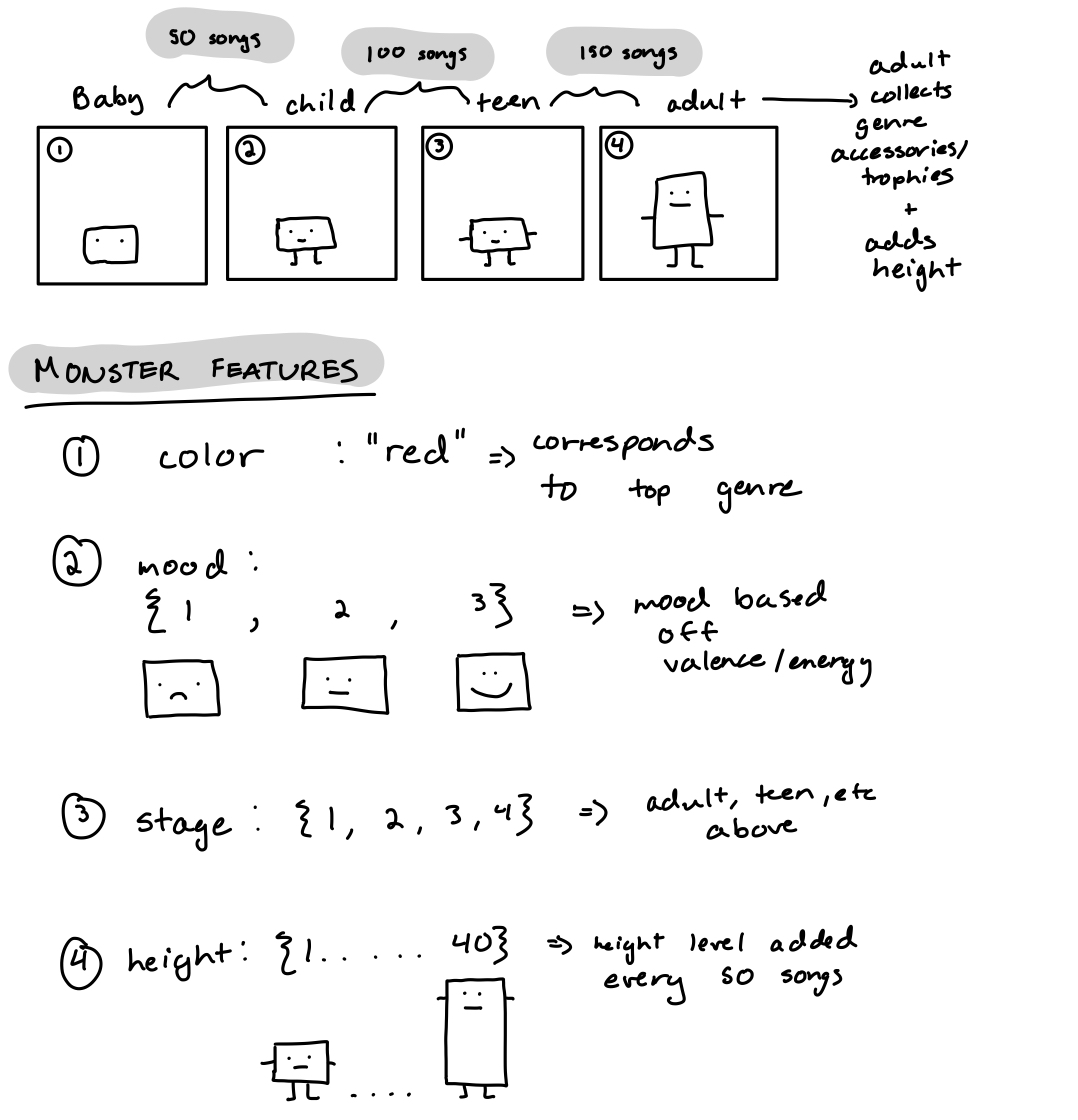 50 songs 100 songs 150 songs
Baby child teen adult → adult
collects
genre
accessories/
trophies
+
adds
height
1 2 3 4
MONSTER FEATURES
1 color : "red" => corresponds
to top genre
2 mood :
{1 , 2 , 3} => mood based
off
valence/energy
3 stage : {1, 2, 3, 4} => adult, teen, etc
above
4 height: {1...... 40} => height level added
every 50 songs
....